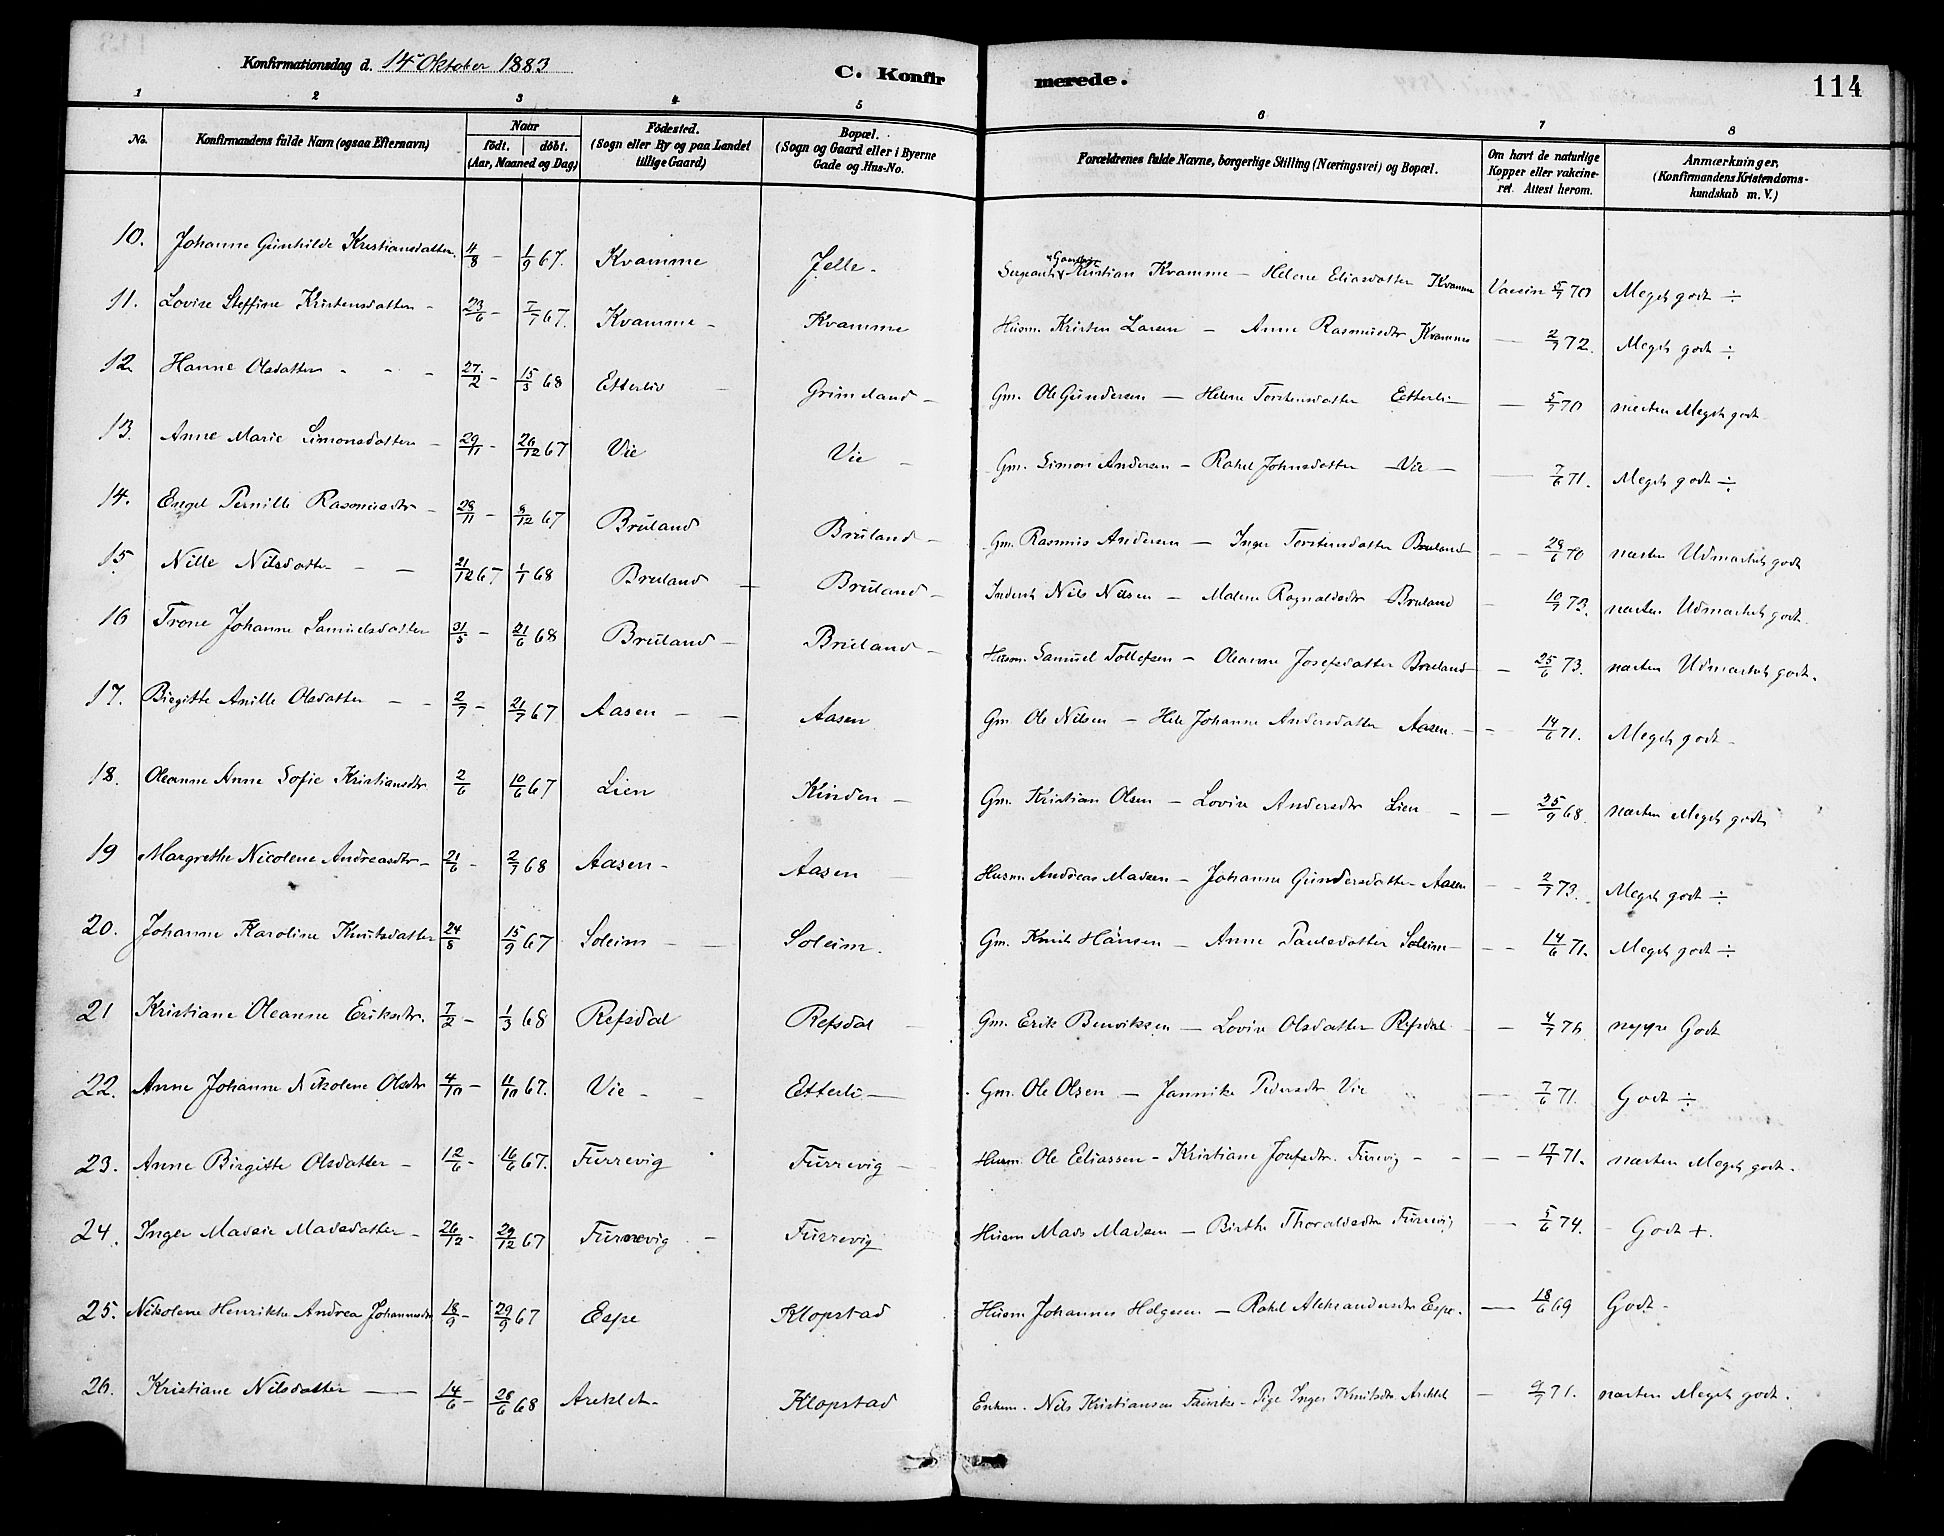 Konfirmationsdag d. 14de Oktober 1883
C. Konfirmerede.
114
1 2 3 4 5 6 7 8
No. | Konfirmandens fulde Navn (ogsaa Efternavn) | Naar født. døbt. (Aar, Maaned og Dag) | Fødested. (Sogn eller By og paa Landet tillige Gaard) | Bopæl. (Sogn og Gaard eller i Byerne Gade og Hus-No. | Forældrenes fulde Navne, borgerlige Stilling (Næringsvei) og Bopæl. | Om havt de naturlige Kopper eller vakcineret. Attest herom. | Anmærkninger. (Konfirmandens Kristendomskundskab m. V.)
10. Johanne Gunhilde Kristiansdatter. 4/8 - 1/9 67. Kvamme Jelle - Sergeant Kristian Kvamme - Helene Eliasdatter Kvamme Vaccin 5/7 70 Meget godt ÷
11. Lovise Steffine Kristensdatter - 23/6 - 7/7 67. Kvamme - Kvamme Husm. Kristen Larsen - Anne Rasmusdtr Kvamme - 2/7 72. Meget godt ÷
12. Hanne Olsdatter - - - 27/2 - 15/3 68 Etterliv - Grimeland - Gm. Ole Gundersen - Helene Torstensdatter Eetterli - 5/7 70 næsten Meget godt
13. Anne Marie Simonsdatter - 29/11 - 26/12 67 Vie Vie - Gm. Simon Andersen - Rakel Johnsdatter - Vie - 7/6 71. Meget godt ÷
14. Engel Pernille Rasmusdtr - 28/11 - 8/12 67 Bruland Bruland - Gm. Rasmus Andersen - Inger Torstensdatter Bruland - 28/6 70 næsten Udmærket godt
15 Nille Nilsdatter - - 21/12 67 1/1 68 Bruland - Bruland - Inderst Nils Nilsen - Malene Ragnaldsdtr Bruland - 10/7 73. næsten Udmærket godt
16 Trone Johanne Samuelsdatter 31/5 - 21/6 68 Bruland - Bruland - Husm. Samuel Tollefsen - Oleanne Josefsdatter Bruland - 25/6 73. næsten Udmærket godt.
17. Birgitte Anille Olsdatter - - 2/7 - 21/7 67 Aasen - - Aasen Gm Ole Nilsen - Hele Johanne Andersdatter Aasen. - 14/6 71. Meget godt -
18. Oleanne Anne Sofie Kristiansdtr 2/6 10/6 67 Lien Kinden - Gm. Kristian Olsen - Lovise Andersdtr Lien - - 25/9 68. næsten Meget godt
19 Margrethe Nicolene Andreasdtr - 21/6 - 2/7 68 Aasen - Aasen - Husm Andreas Madsen - Johanne Gundersdatter Aasen - - 2/7 73. Meget godt ÷
20. Johanne Karoline Knutsdatter 24/8 15/9 67 Soleim - - Soleim. Gm. Knut Hansen - Anne Paulsdatter Soleim - - 14/6 71. Meget godt ÷
21 Kristiane Oleanne Eriksdtr. 7/2 - 1/3 68 Refsdal Refsdal - Gm. Erik Bervikssen - Lovise Olsdatter Refsdal - 4/7 76 neppe Godt
22. Anne Johanne Nikolene Olsdtr 4/10 - 11/10 67. Vie - - Etterli - Gm. Ole Olsen - Jannike Pedersdtr Vie - 7/6 71. Godt ÷
23. Anne Birgitte Olsdatter - 12/6 - 16/6 67. Furrevig Furrevig - Husm. Ole Eeliassen - Kristiane Josefsdtr. Furevig - - - 17/7 71. næsten Meget godt.
24. Inger Madsie Madsdatter - 26/12 - 29/12 67 Furrevig - Furrevig Husm Mads Madsen - Birthe Thoraldsdtr Furrevig - 5/6 74. - Godt +.
25. Nikolene Henrikke Andrea Johannesdtr 18/9 - 29/9 67 Espe Klopstad Husm Johannes Helgesen - Rakel Aleksandersdtr Espe. - 18/6 69 Godt -
26. Kristiane Nilsdatter - 14/6 - 28/6 68 Areklet - Klopstad Enkem. Nils Kristiansen - Pige Inger Knutsdtr Areklet - 9/7 71. næsten Meget godt.